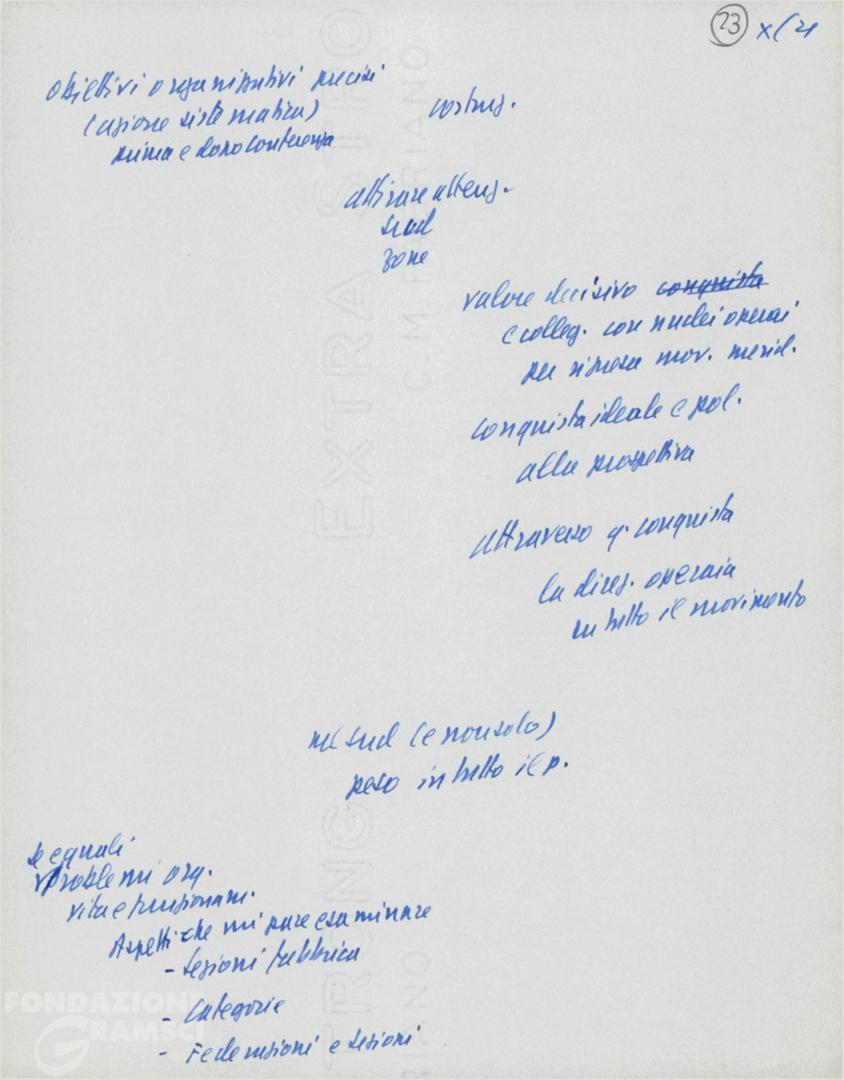 23 x/21
obiettivi organizzativi precisi
(azione sistematica)
prima e dopo conferenza
costruz.
attirare attenz.
sud
zone
valore decisivo conquista
e colleg. con nuclei operai
per ripresa mov. merid.
conquista ideale e pol.
alla prospettiva
attraverso q. conquista
la direz. operaia
su tutto il movimento
nel sud (e non solo)
peso in tutto il p.
se e quali
problemi org.
vita e funzionam.
Aspetti che mi pare esaminare
- sezioni fabbrica
- categorie
- Federazioni e sezioni
FONDAZIONE
GRAMSCI
EXTRA STRO
C.M. FABRIANO
TRONG
RIANO